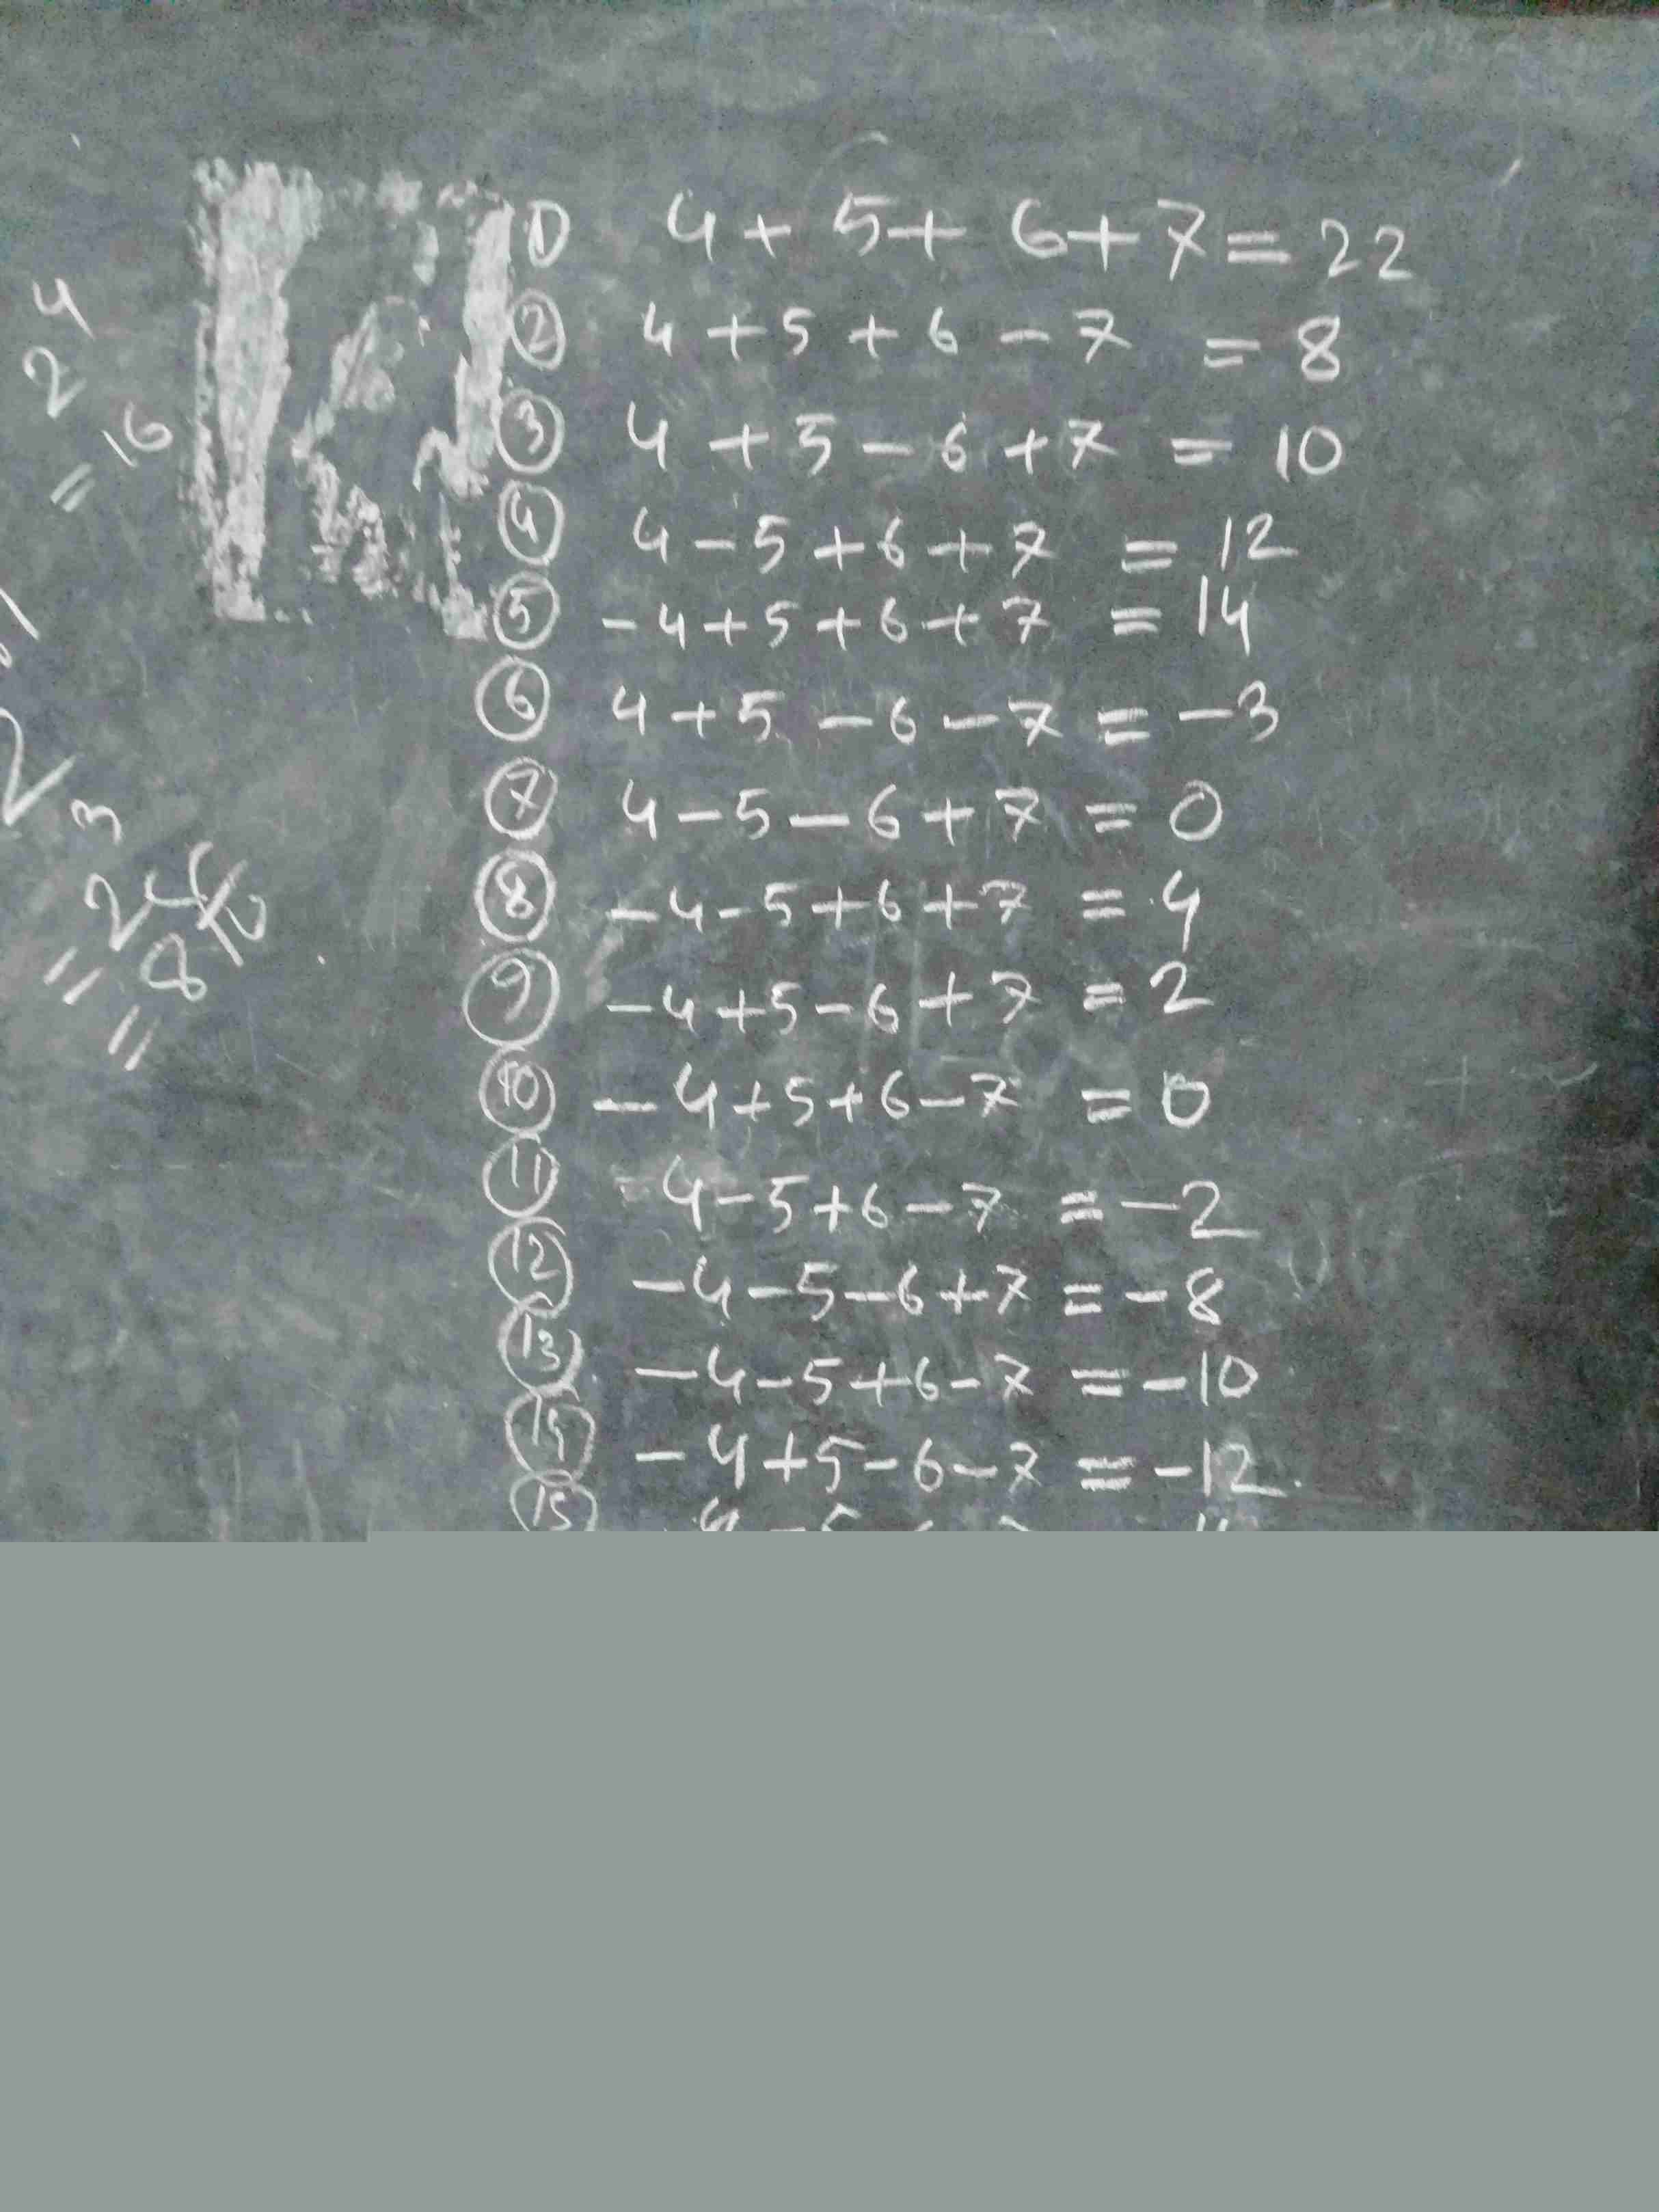 ① 4 + 5 + 6 + 7 = 22
② 4 + 5 + 6 - 7 = 8
③ 4 + 5 - 6 + 7 = 10
④ 4 - 5 + 6 + 7 = 12
⑤ - 4 + 5 + 6 + 7 = 14
⑥ 4 + 5 - 6 - 7 = - 3
⑦ 4 - 5 - 6 + 7 = 0
⑧ - 4 - 5 + 6 + 7 = 4
⑨ - 4 + 5 - 6 + 7 = 2
⑩ - 4 + 5 + 6 - 7 = 0
⑪ 4 - 5 + 6 - 7 = - 2
⑫ - 4 - 5 - 6 + 7 = - 8
⑬ - 4 - 5 + 6 - 7 = - 10
⑭ - 4 + 5 - 6 - 7 = - 12
⑮
2⁴
= 16
2³
= 8